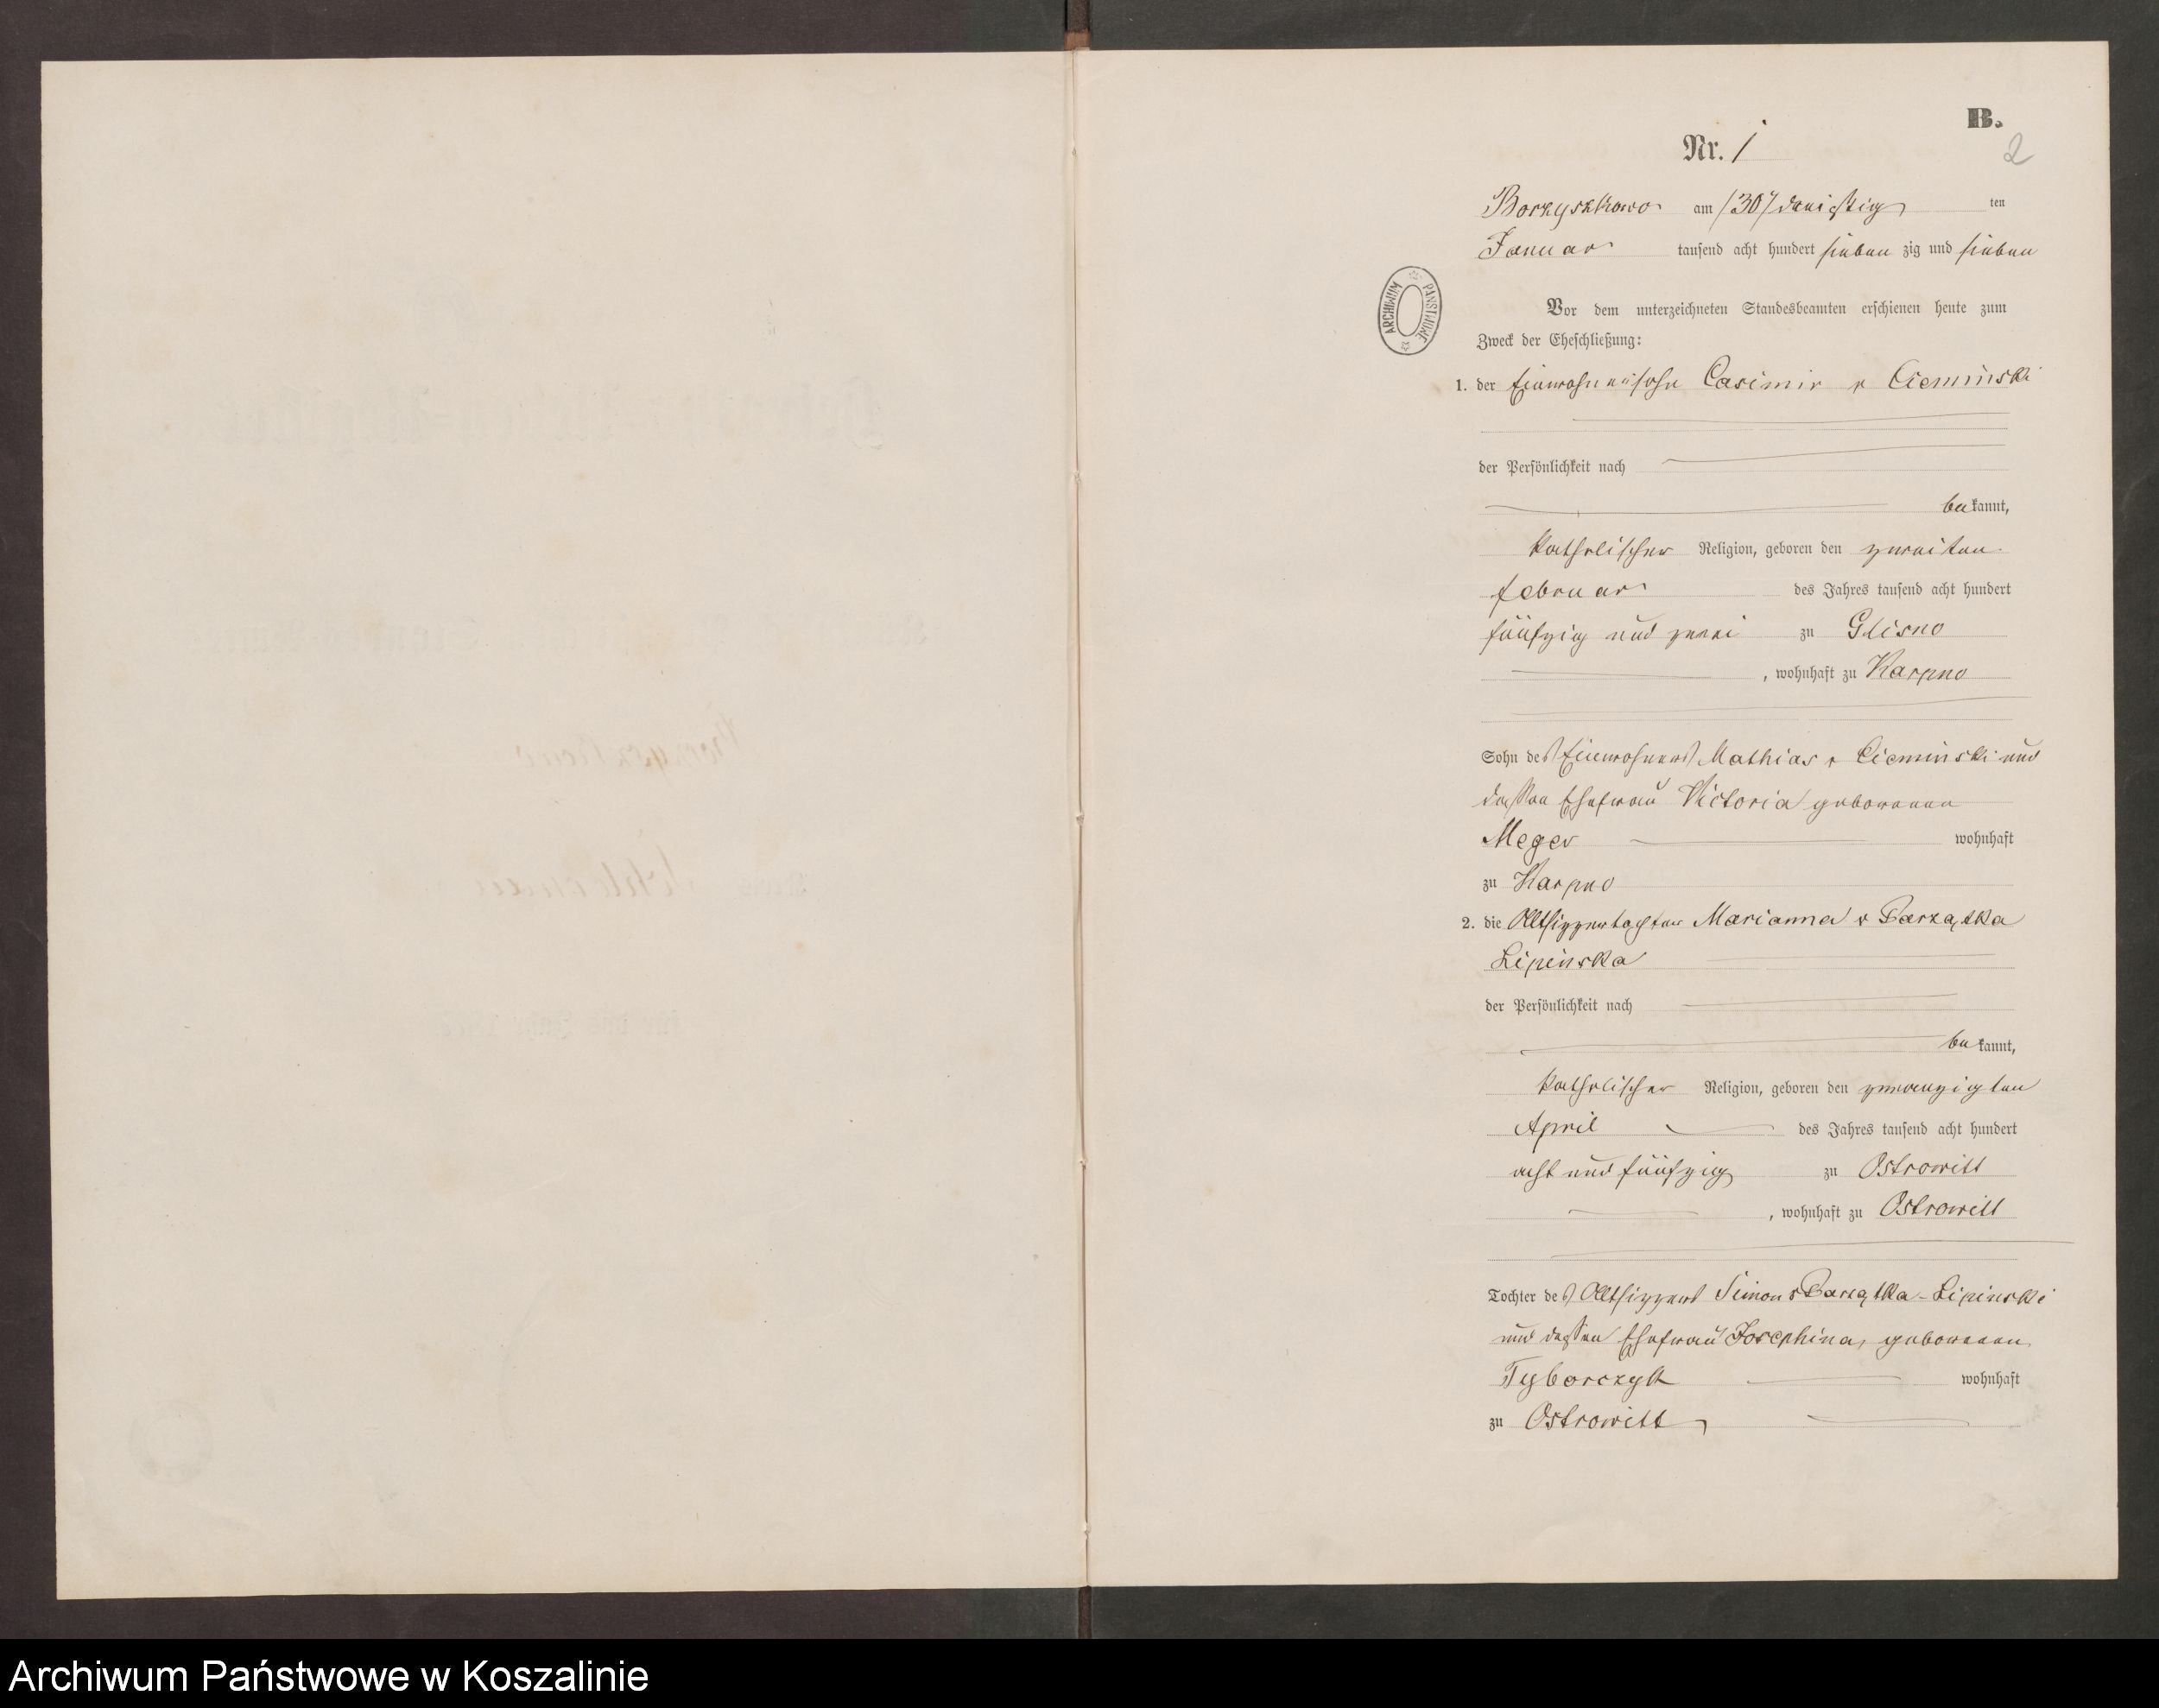 B.
Nr. 1
2
Borzyszkowo am /30/ dreißig ten
Januar tausend acht hundert sieben zig und sieben
Vor dem unterzeichneten Standesbeamten erschienen heute zum
Zweck der Eheschließung:
ARCHIWUM PAŃSTWOWE
1. der Einwohnersohn Casimir v Ciemiński
der Persönlichkeit nach
bekannt,
katholischer Religion, geboren den zweiten
Februar des Jahres tausend acht hundert
fünfzig und zwei zu Glisno
, wohnhaft zu Karpno
Sohn des Einwohners Mathias v Ciemiński und
dessen Ehefrau Victoria geborenen
Meger wohnhaft
zu Karpno
2. die Altsitzertochter Marianna v Parzątka
Lipińska
der Persönlichkeit nach
bekannt,
katholischer Religion, geboren den zwanzigten
April des Jahres tausend acht hundert
acht und fünfzig zu Ostrowitt
, wohnhaft zu Ostrowitt
Tochter des Altsitzers Simon v Parzątka-Lipiński
und dessen Ehefrau Josephina, geborenen
Tyborczyk wohnhaft
zu Ostrowitt
Archiwum Państwowe w Koszalinie